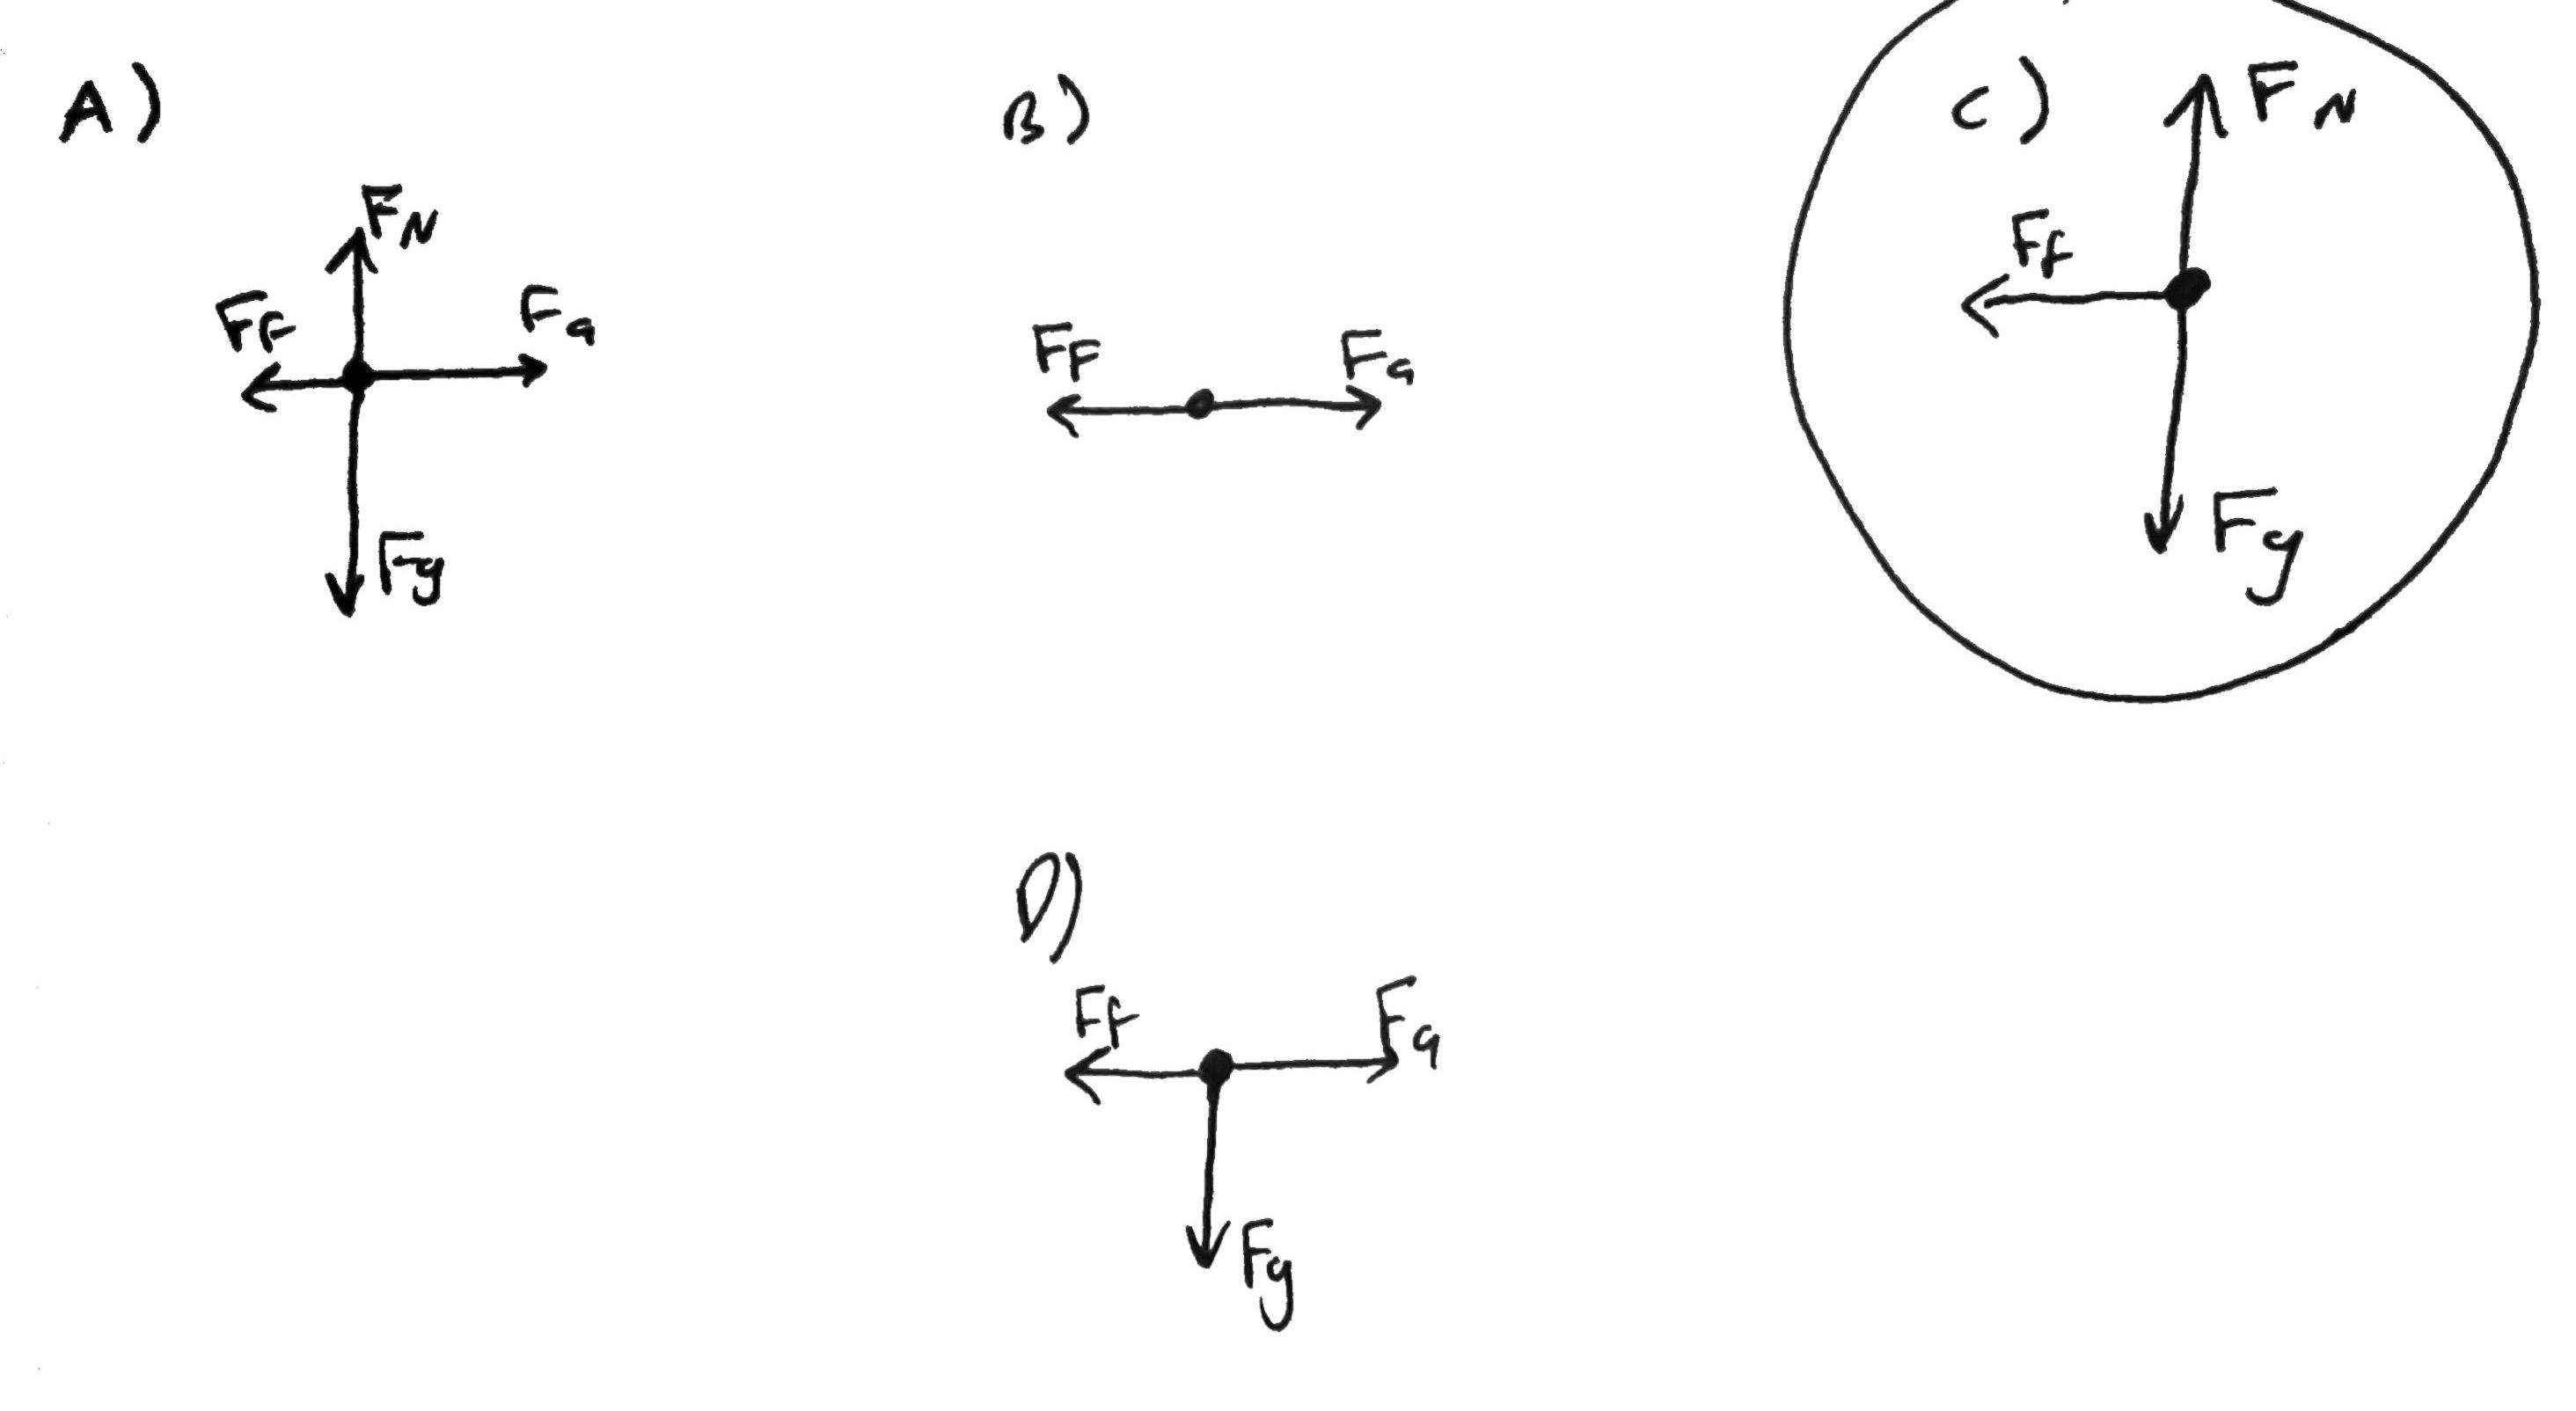 A)
FN
FF
Fa
Fg
B)
FF
Fa
C)
FN
Ff
Fg
D)
Ff
Fa
Fg